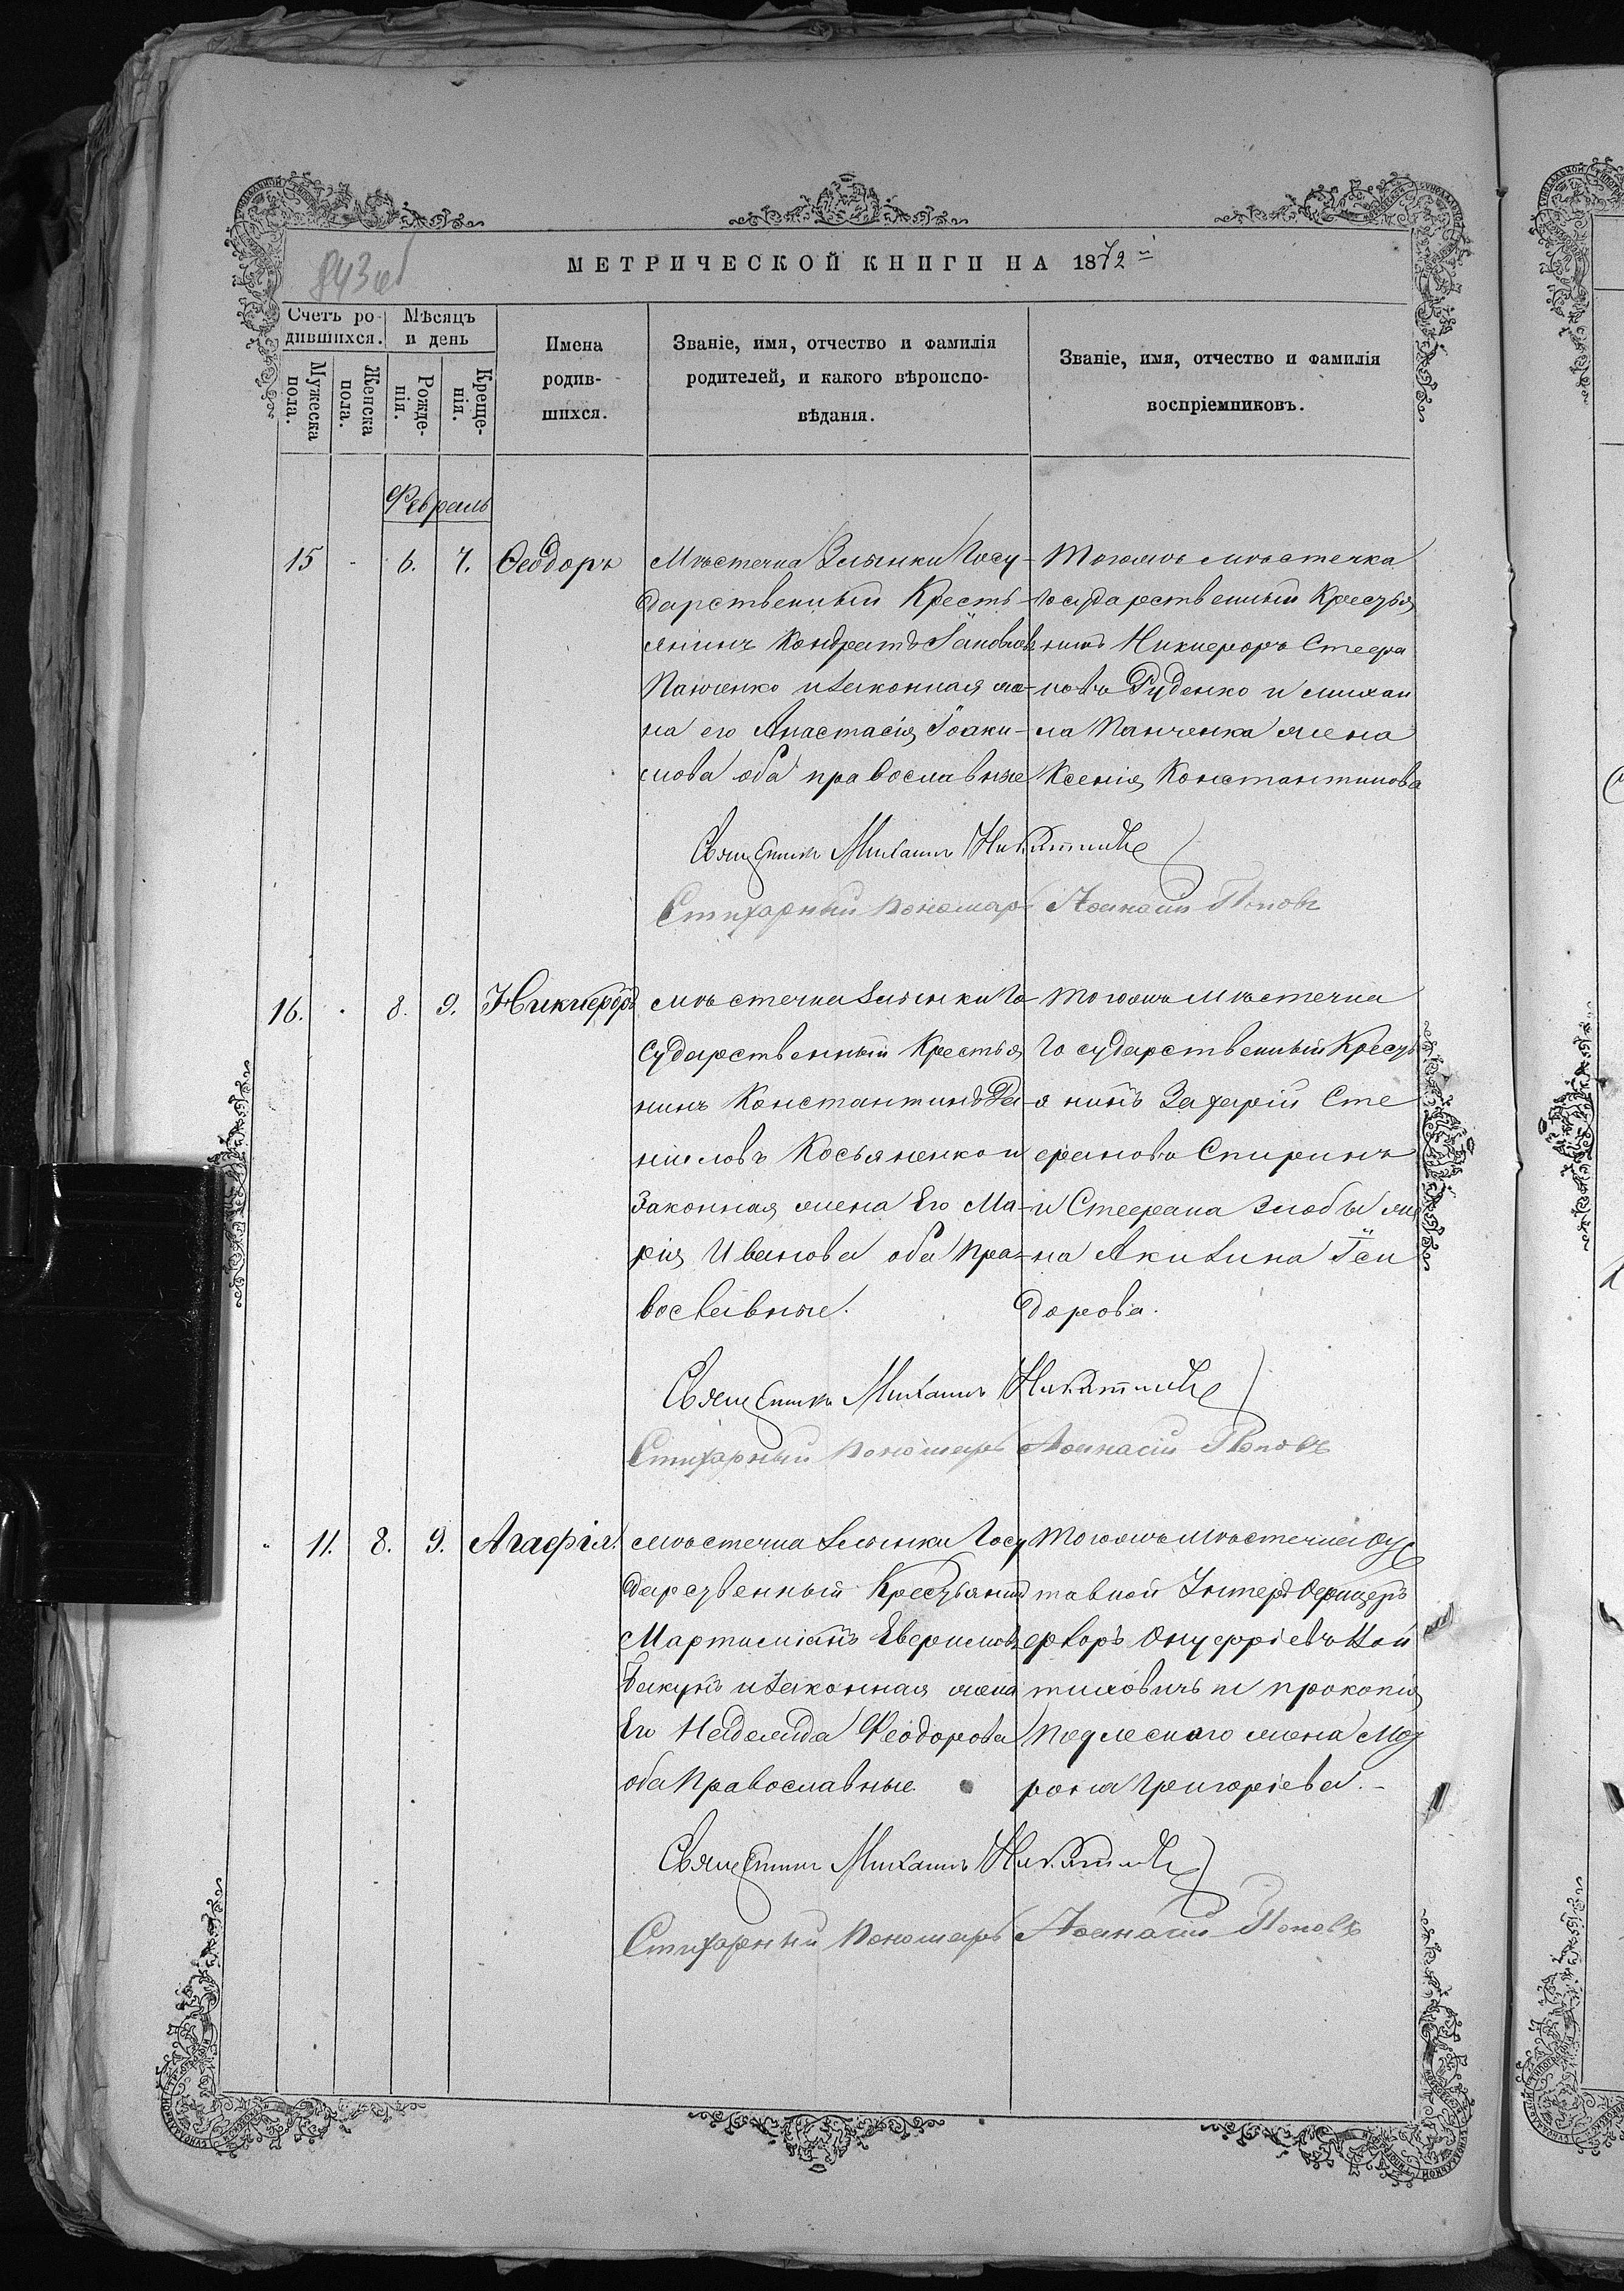 843об
МЕТРИЧЕСКОЙ КНИГИ НА 1872й
Счетъ ро-
дившихся.
Мужеска пола.
Женска пола.
Мѣсяцъ
и день
Рожде-
нія.
Креще-
нія.
Имена
родив-
шихся.
Званіе, имя, отчество и фамилія
родителей, и какого вѣроиспо-
вѣданія.
Званіе, имя, отчество и фамилія
воспріемниковъ.
Февраль
15 - 6. 7. Ѳеодоръ
Мѣстечка Злынки Госу-
дарственный Кресть-
янинъ Кондратъ
Панченко и законная же-
на его Анастасія Іоаки-
мова оба православные
Тогожъ мѣстечка
Государственный Крестья
нинъ Никифоръ Стефа
новъ Руденко и михаи
ла Панченка жена
Ксенія Константинова
Священникъ Михаилъ
Стихарный пономарь Аѳанасій Поповъ
16. - 8. 9. Никифоръ
мѣстечка Злынки Го
сударственный Крестья
нинъ Константинъ Да
ниловъ Косьяненко и
Законная жена Его Ма-
рія Иванова оба пра-
вославные.
тогожъ Мѣстечка
Государственный Кресть
янинъ Захарій Сте
фановъ Спиринъ
и Стефана Злобы же
на Акилина Іси
дорова.
Священникъ Михаилъ
Стихарный пономарь Аѳанасій Поповъ
- 11. 8. 9. Агафія.
мѣстечка Злынки Госу
дарственный Крестьянинъ
Мартиміанъ
и законная жена
Его Феодорова
оба Православные
Тогожъ Мѣстечка От
тавной Унтеръ Офицеръ
Онуфріевъ
и прокопія
жена Мат
рона Григоріева. -
Священникъ Михаилъ
Стихарный пономарь Аѳанасій Поповъ